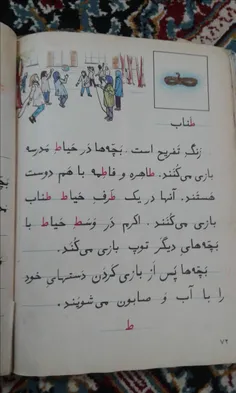 طناب
زنگِ تفریح است. بَچّه‌ها دَر حَیاطِ مَدرِسه
بازی می‌کُنَند. طاهِره و فاطِمه با هَم دوست
هَستَند. آنها در یک طَرَفِ حَیاط طَناب
بازی می‌کُنَند. اَکرَم دَر وَسَطِ حَیاط با
بَچّه‌های دیگَر توپ بازی می‌کُنَد.
بَچّه‌ها پَس اَز بازی کَردَن دَستهای خود
را با آب و صابون می‌شویَند.
ط
۷۲